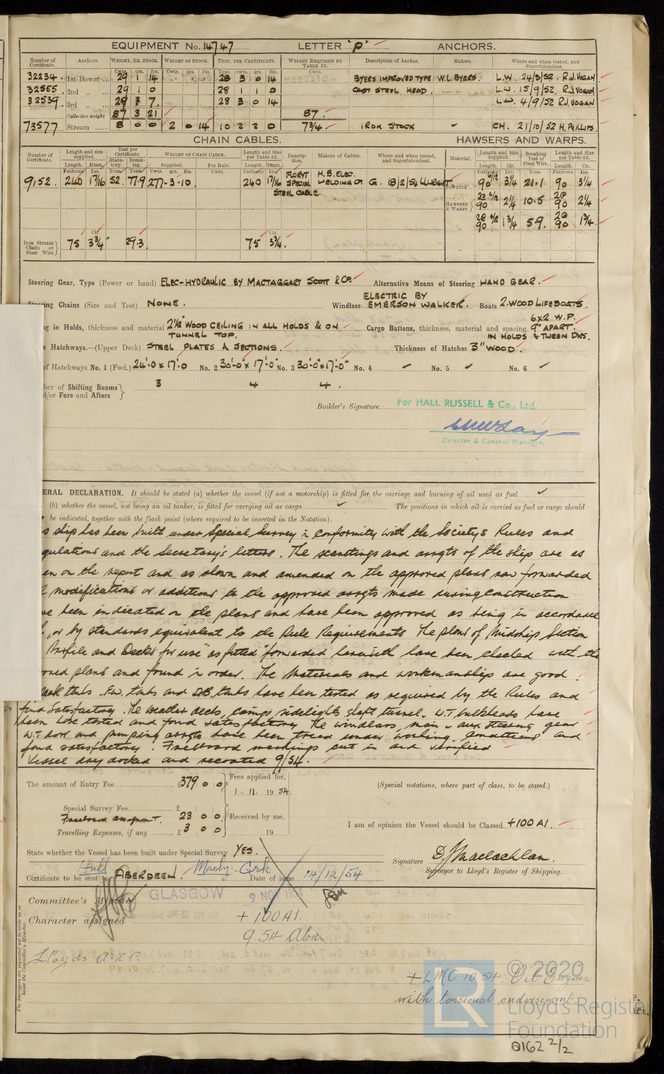 EQUIPMENT No. 14747 LETTER "P" ANCHORS.
Number of Certificate. Anchors. WEIGHT, EX. STOCK. WEIGHT OF STOCK. TEST, PER CERTIFICATE. WEIGHT REQUIRED BY TABLE 53. Description of Anchor. Makers. Where and when tested, and Superintendent.
32234 1st Bower 29 1 14 28 3 0 14 BYERS IMPROVED TYPE W.L. BYERS. L.W. 24/3/52 R.J. VOGAN
32565 2nd 29 1 0 28 1 1 0 CAST STEEL HEAD. L.W. 15/9/52. R.J. VOGAN
32539 3rd 29 7. 28 3 0 14 L.W. 4/9/52 R.J. VOGAN
Collective weight 87 3 21 87
73577 Stream 8 0 0 2 0 14 10 2 2 0 7¾ IRON STOCK CH. 21/10/52 H. PHILLIPS
CHAIN CABLES. HAWSERS AND WARPS.
Number of Certificate. Length and size supplied. Test per Certificate. WEIGHT OF CHAIN CABLE. Length and size per Table 53. Description. Makers of Cables. Where and when tested, and Superintendent. Material. Length and size supplied. Breaking Test of Steel Wire. Length and size per Table 53.
9152. 240 1 7/16 52. 77.9 277-3-10. 240 1 7/16 SPECIAL STEEL CABLE. WELDING Co G. 18/2/54
90 3¼ 90 3¼
HAWSERS & WARPS 90 2¼ 10.5 90 2¼
90 1¾ 5.9. 90 1¾
Iron Stream Chain or Steel Wire 75 3¾ 29.3. 75 3¾.
Steering Gear, Type (Power or hand) ELEC-HYDRAULIC BY MACTAGGART SCOTT & Co. Alternative Means of Steering HAND GEAR.
Chains (Size and Test) NONE. Windlass ELECTRIC BY EMERSON WALKER. Boats 2. WOOD LIFEBOATS.
in Holds, thickness and material 2½" WOOD CEILING IN ALL HOLDS & ON TUNNEL TOP. Cargo Battens, thickness, material and spacing. 6x2 W.P. 9" APART. IN HOLDS & TWEEN DKS.
Hatchways.—(Upper Deck) STEEL PLATES & SECTIONS. Thickness of Hatches 3" WOOD.
of Hatchways No. 1 (Fwd.) 24'-0 x 17'-0 No. 2 30'-0 x 17'-0" No. 3 30'-0" x 17'-0" No. 4 No. 5 No. 6
of Shifting Beams and/or Fore and Afters 3 4 4.
Builder's Signature For HALL RUSSELL & Co., Ltd.
Director & General Manager.
GENERAL DECLARATION. It should be stated (a) whether the vessel (if not a motorship) is fitted for the carriage and burning of oil used as fuel
(b) whether the vessel, not being an oil tanker, is fitted for carrying oil as cargo The positions in which oil is carried as fuel or cargo should
be indicated, together with the flash point (where required to be inserted in the Notation).
ship has been built under Special Survey in conformity with the Society's Rules and
and the Secretary's letters. The scantlings and arrgts of the ship are as
on the report and as shown and amended on the approved plans now forwarded
modifications or additions to the approved arrgts made during construction
been indicated on the plans and have been approved as being in accordance
or by standards equivalent to the Rule Requirements. The plans of Midship Section
Profile and Decks for use "as fitted" forwarded herewith have been checked with the
plans and found in order. The Materials and workmanship are good.
tanks. F.W. tanks and D.B. tanks have been tested as required by the Rules and
found satisfactory. The weather decks, sidelights shaft tunnel. W.T. bulkheads have
been hose tested and found satisfactory. The windlass main & aux steering gear
W.T. door and pumping arrgts have been tried under working conditions and
found satisfactory. Freeboard markings cut in and verified
Vessel dry docked and recoated 9/54.
The amount of Entry Fee £379 0 0 Fees applied for, 1. 11. 19 54. (Special notations, where part of class, to be stated.)
Special Survey Fee £
Freeboard assignment 23 0 0 Received by me, I am of opinion the Vessel should be Classed +100A1.
Travelling Expenses, if any £3 0 0 19
State whether the Vessel has been built under Special Survey YES.
Signature D. Maclachlan.
Certificate to be sent to ABERDEEN Date of issue 14/12/54 Surveyor to Lloyd's Register of Shipping.
Committee's Minute GLASGOW 9 NOV 1954
Character assigned + 100A1.
9.54 Aber
Lloyds A.&C.P.
+ LMC 10.54 Oil Engine
with torsional endorsement
© 2020
LR Lloyd's Register
Foundation
0162 2/2